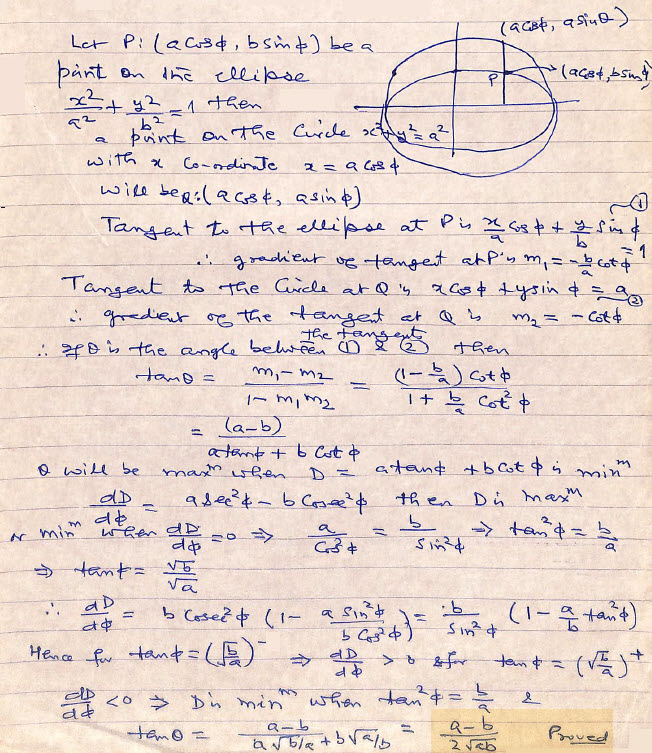 Let P: (a cosφ, b sinφ) be a
point on the ellipse
x²/a² + y²/b² = 1 then
a point on the Circle x²+y² = a²
with x Co-ordinate x = a cosφ
will be Q: (a cosφ, a sinφ)
(a cosφ, a sinθ)
P
(a cosφ, b sinφ)
Tangent to the ellipse at P is x/a cosφ + y/b sinφ = 1 ①
∴ gradient of tangent at P is m₁ = -b/a cotφ
Tangent to the Circle at Q is x cosφ + y sinφ = a ②
∴ gradient of the tangent at Q is m₂ = - cotφ
∴ If θ is the angle between the tangents ① & ② then
tanθ = (m₁ - m₂)/(1 - m₁m₂) = ((1 - b/a) cotφ)/(1 + b/a cot²φ)
= (a-b)/(a tanφ + b cotφ)
θ will be maxᵐ when D = a tanφ + b cotφ is minᵐ
dD/dφ = a sec²φ - b cosec²φ then D is maxᵐ
or minᵐ when dD/dφ = 0 ⇒ a/cos²φ = b/sin²φ ⇒ tan²φ = b/a
⇒ tanφ = √b/√a
∴ dD/dφ = b cosec²φ (1 - a sin²φ/b cos²φ) = b/sin²φ (1 - a/b tan²φ)
Hence for tanφ = (√b/a)⁻ ⇒ dD/dφ > 0 & for tanφ = (√b/a)⁺
dD/dφ < 0 ⇒ D is minᵐ when tan²φ = b/a &
tanθ = (a-b)/(a√b/a + b√a/b) = (a-b)/(2√ab) Proved